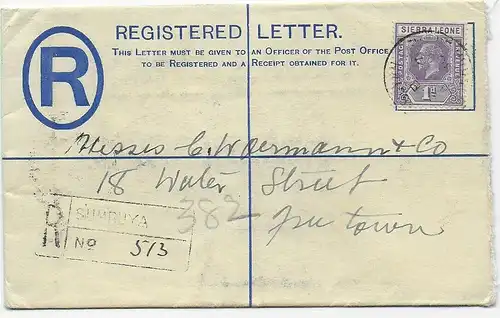 REGISTERED LETTER.
THIS LETTER MUST BE GIVEN TO AN OFFICER OF THE POST OFFICE
TO BE REGISTERED AND A RECEIPT OBTAINED FOR IT.
R
SIERRA LEONE
POSTAGE
1d
Messrs C. Woermann & Co
18 Water Street
Freetown
382
R
SUMBUYA
No 513